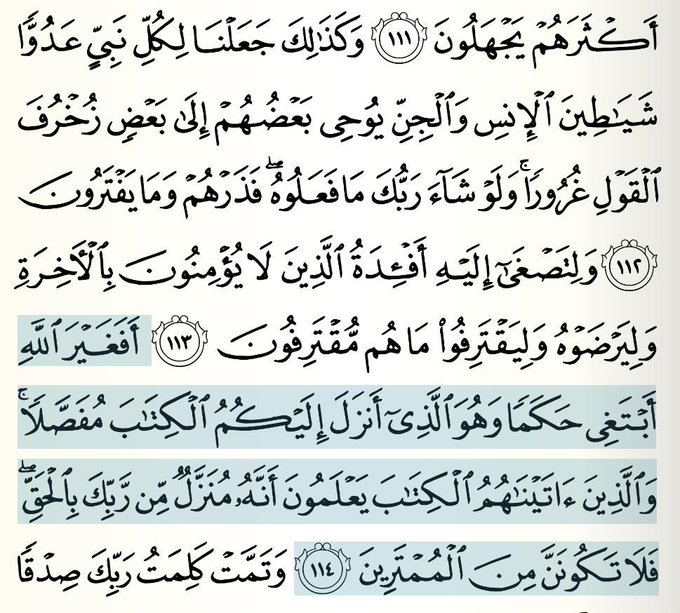 أَكۡثَرَهُمۡ يَجۡهَلُونَ ١١١ وَكَذَٰلِكَ جَعَلۡنَا لِكُلِّ نَبِيٍّ عَدُوّٗا
شَيَٰطِينَ ٱلۡإِنسِ وَٱلۡجِنِّ يُوحِي بَعۡضُهُمۡ إِلَىٰ بَعۡضٖ زُخۡرُفَ
ٱلۡقَوۡلِ غُرُورٗاۚ وَلَوۡ شَآءَ رَبُّكَ مَا فَعَلُوهُۖ فَذَرۡهُمۡ وَمَا يَفۡتَرُونَ
١١٢ وَلِتَصۡغَىٰٓ إِلَيۡهِ أَفۡـِٔدَةُ ٱلَّذِينَ لَا يُؤۡمِنُونَ بِٱلۡأٓخِرَةِ
وَلِيَرۡضَوۡهُ وَلِيَقۡتَرِفُواْ مَا هُم مُّقۡتَرِفُونَ ١١٣ أَفَغَيۡرَ ٱللَّهِ
أَبۡتَغِي حَكَمٗا وَهُوَ ٱلَّذِيٓ أَنزَلَ إِلَيۡكُمُ ٱلۡكِتَٰبَ مُفَصَّلٗاۚ
وَٱلَّذِينَ ءَاتَيۡنَٰهُمُ ٱلۡكِتَٰبَ يَعۡلَمُونَ أَنَّهُۥ مُنَزَّلٞ مِّن رَّبِّكَ بِٱلۡحَقِّۖ
فَلَا تَكُونَنَّ مِنَ ٱلۡمُمۡتَرِينَ ١١٤ وَتَمَّتۡ كَلِمَتُ رَبِّكَ صِدۡقٗا